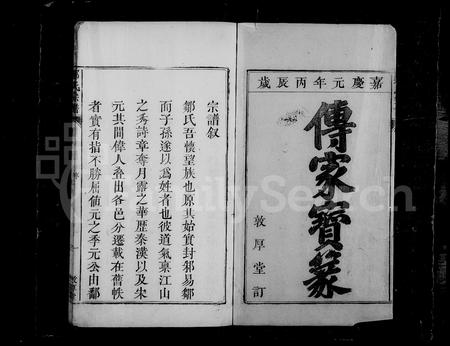 嘉慶元年丙辰歲
傳家寶篆
敦厚堂訂
宗譜叙
鄒氏吾懷望族也原其始實封易鄒
而子孫遂以為姓者也彼道氣稟江山
之秀詩章奪月露之華歷秦漢以及朱
元其間偉人叠出各邑分遷載在舊帙
者實有指不勝屈値元之季元公由鄱
FamilySearch